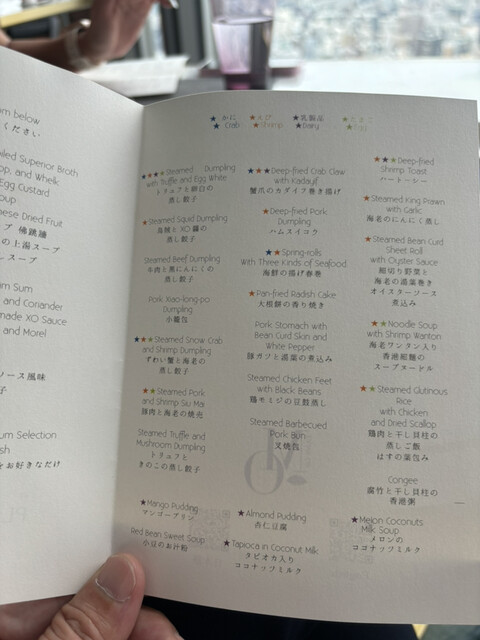 om below
ください
Superior Broth
op, and Whelk
Egg Custard
oup
nese Dried Fruit
プ 佛跳牆
の上湯スープ
スープ
um Sum
and Coriander
made XO Sauce
and More!
ソース風味
子
um Selection
sh
お好きなだけ
★ かに ★ えび ★ 乳製品 ★ たまご
★ Crab ★ Shrimp ★ Dairy ★ Egg
★★★★Steamed Dumpling
with Truffle and Egg White
トリュフと卵白の
蒸し餃子
★Steamed Squid Dumpling
烏賊と XO 醤の
蒸し餃子
Steamed Beef Dumpling
牛肉と黒にんにくの
蒸し餃子
Pork Xiao-long-po
Dumpling
小籠包
★★★Steamed Snow Crab
and Shrimp Dumpling
ずわい蟹と海老の
蒸し餃子
★★Steamed Pork
and Shrimp Siu Mai
豚肉と海老の焼売
Steamed Truffle and
Mushroom Dumpling
トリュフと
きのこの蒸し餃子
★Mango Pudding
マンゴープリン
Red Bean Sweet Soup
小豆のお汁粉
★★★Deep-fried Crab Claw
with Kadayif
蟹爪のカダイフ巻き揚げ
★Deep-fried Pork
Dumpling
ハムスイコウ
★★Spring-rolls
with Three Kinds of Seafood
海鮮の揚げ春巻
★Pan-fried Radish Cake
大根餅の香り焼き
Pork Stomach with
Bean Curd Skin and
White Pepper
豚ガツと湯葉の煮込み
Steamed Chicken Feet
with Black Beans
鶏モミジの豆鼓蒸し
Steamed Barbecued
Pork Bun
叉焼包
★Almond Pudding
杏仁豆腐
★Tapioca in Coconut Milk
タピオカ入り
ココナッツミルク
★★Deep-fried
Shrimp Toast
ハートーシー
★Steamed King Prawn
with Garlic
海老のにんにく蒸し
★Steamed Bean Curd
Sheet Roll
with Oyster Sauce
細切り野菜と
海老の湯葉巻き
オイスターソース
煮込み
★★Noodle Soup
with Shrimp Wanton
海老ワンタン入り
香港細麺の
スープヌードル
★★Steamed Glutinous
Rice
with Chicken
and Dried Scallop
鶏肉と干し貝柱の
蒸しご飯
はすの葉包み
Congee
腐竹と干し貝柱の
香港粥
★Melon Coconuts
Milk Soup
メロンの
ココナッツミルク